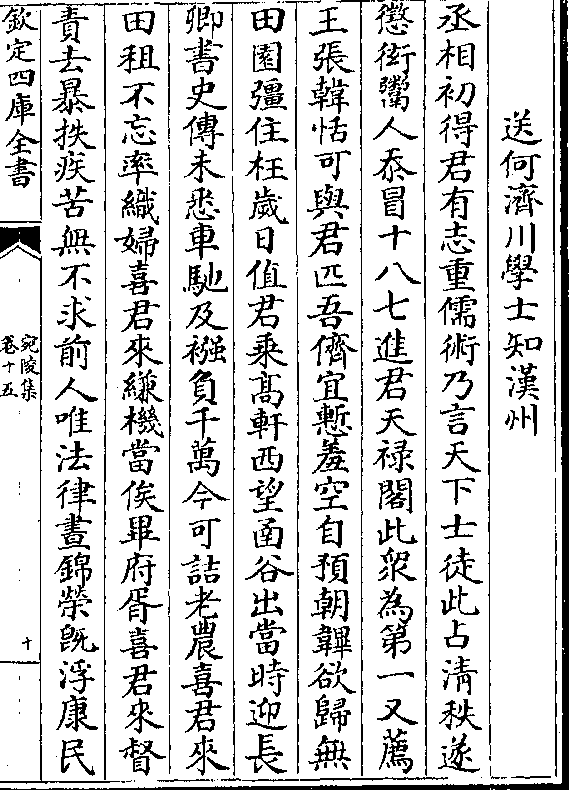 送何濟川學士知漢州
丞相初得君有志重儒術乃言天下士徒此占清秩遂
懲衒鬻人忝冒十八七進君天禄閣此衆為第一又薦
王張韓恬可與君匹吾儕宜慙羞空自預朝韠欲歸無
田園彊住枉歲日值君乘髙軒西望函谷出當時迎長
卿書史傳未悉車馳及襁負千萬今可詰老農喜君來
田租不忘率織婦喜君來縑機當俟畢府胥喜君來督
責去暴抶疾苦無不求前人唯法律晝錦榮旣浮康民
欽定四庫全書
宛陵集
卷十五
十